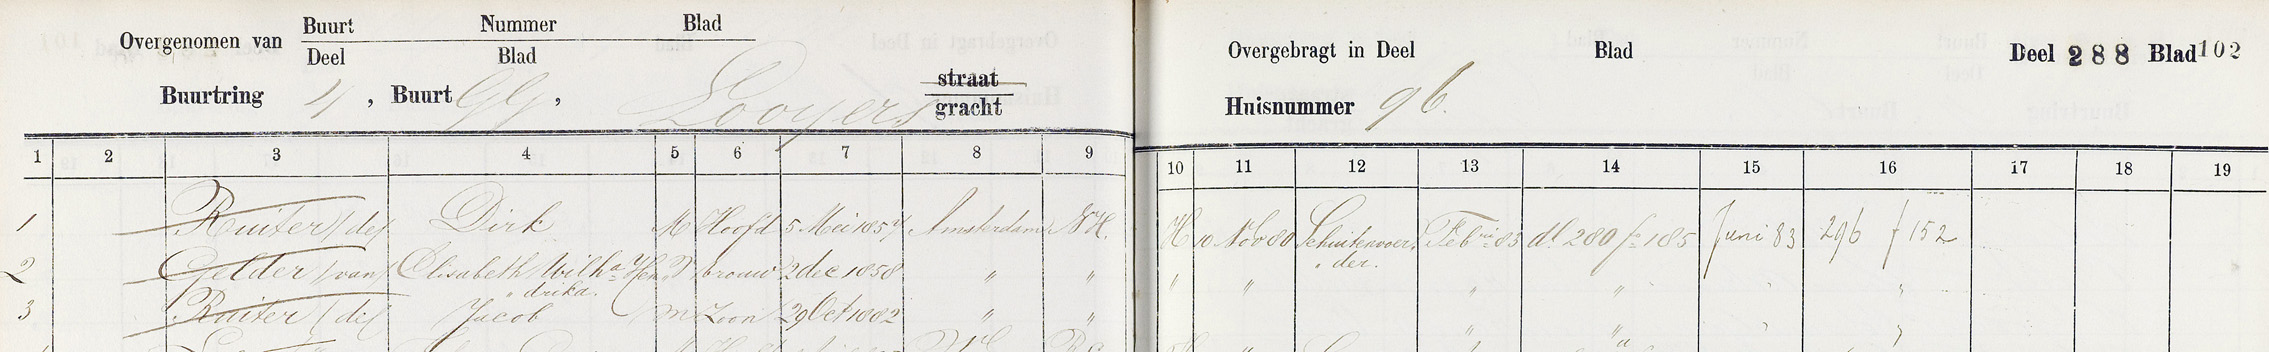 Overgenomen van Buurt Nummer Blad
Deel Blad
Buurtring 4, Buurt GG, Looyers straat
gracht
1 2 3 4 5 6 7 8 9
1 Ruiter (de) Dirk M Hoofd 5 Mei 1857 Amsterdam NH.
2 Gelder (van) Elisabeth Wilha Hen V vrouw 2 dec 1858 " "
" drika.
3 Ruiter (de) Jacob m Zoon 29 Oct 1882 " "
Overgebragt in Deel Blad Deel 288 Blad 102
Huisnummer 96.
10 11 12 13 14 15 16 17 18 19
H 10 Nov 80 Schuitenvoer Febri 83 dl 280 fo 185 Juni 83 296 f 152
" der.
" " " " " "
" " " "